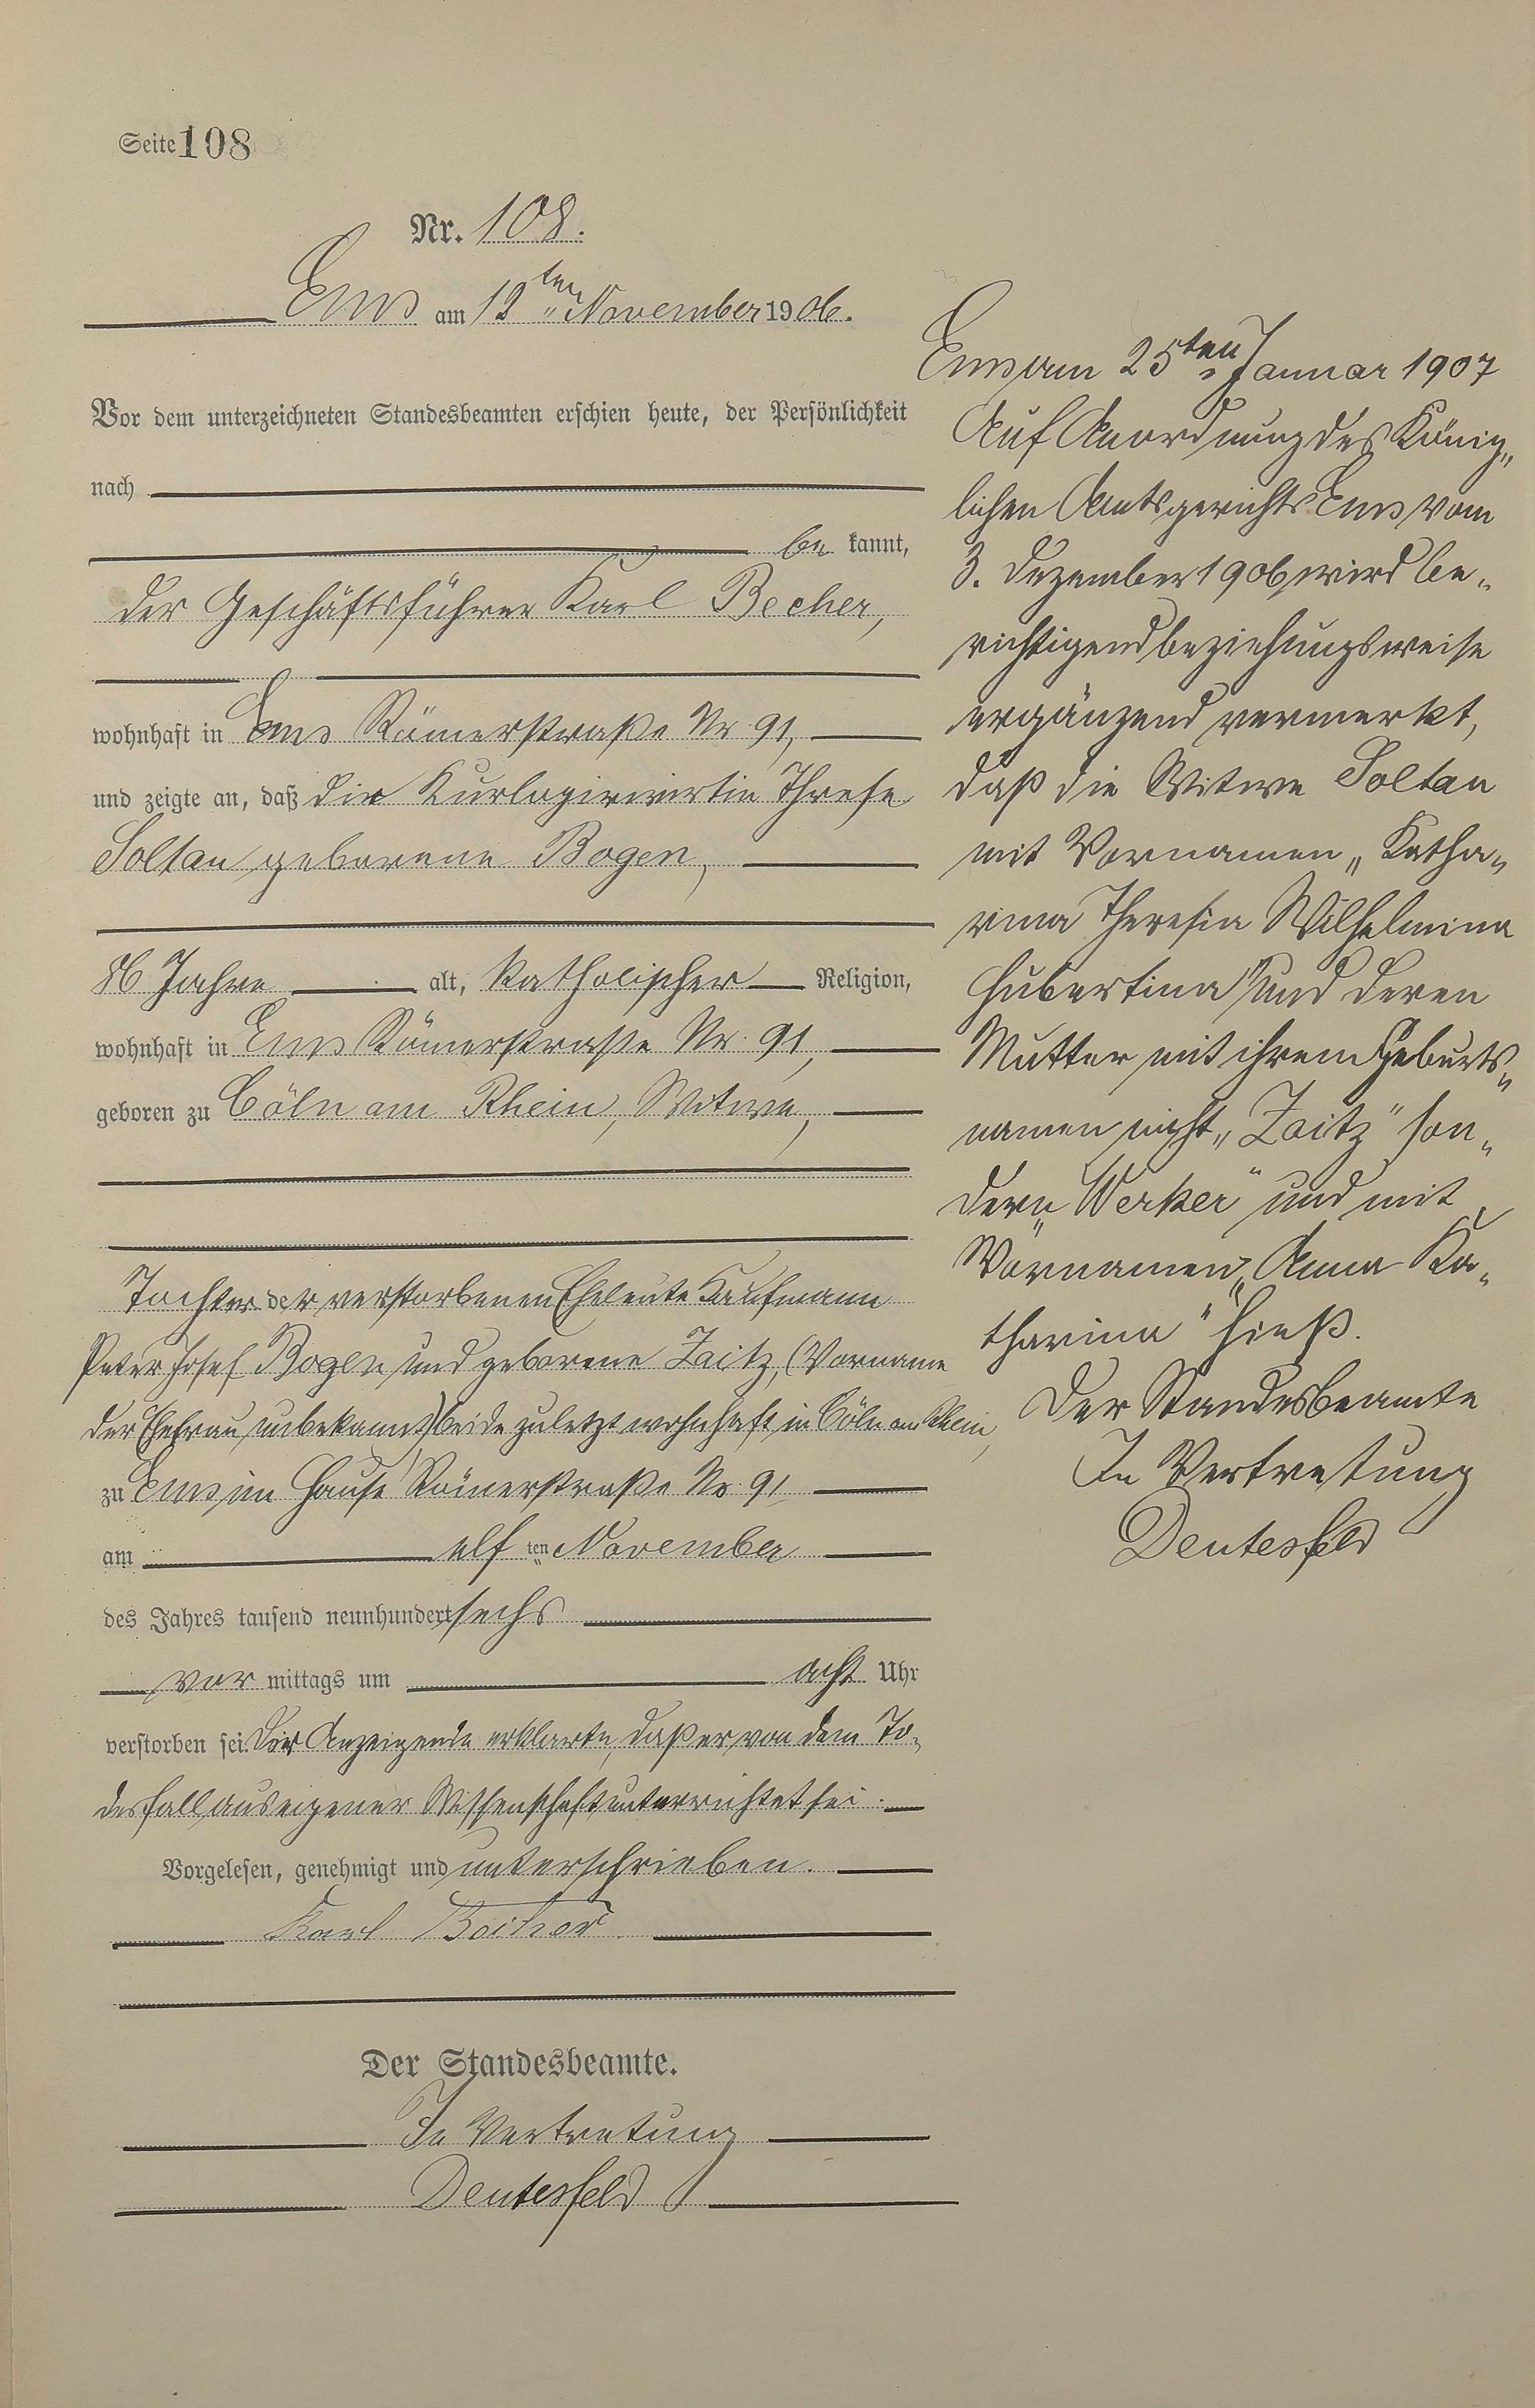 Seite 108
Nr. 108.
Ems am 12ten November 1906.
Vor dem unterzeichneten Standesbeamten erschien heute, der Persönlichkeit
nach
be kannt,
der Geschäftsführer Karl Becher,
wohnhaft in Ems Römerstraße Nr. 91,
und zeigte an, daß die Kurlogirwirtin Threse
Soltan geborene Bogen,
86 Jahre alt, katholischer Religion,
wohnhaft in Ems Römerstrasse Nr. 91,
geboren zu Cöln am Rhein, Witwe,
Tochter der verstorbenen Eheleute Kaufmann
Peter Josef Bogen und geborene Zaitz, (Vorname
der Ehefrau unbekannt) beide zuletzt wohnhaft in Cöln am Rhein,
zu Ems im Hause Römerstraße Nr. 91
am elf ten November
des Jahres tausend neunhundert sechs
vor mittags um acht Uhr
verstorben sei. Der Anzeigende erklärte, daß er von dem To-
desfall aus eigener Wissenschaft unterrichtet sei.
Vorgelesen, genehmigt und unterschrieben.
Karl Becher
Der Standesbeamte.
In Vertretung
Deutesfeld
Ems am 25ten Januar 1907
Auf Anordnung des König-
lichen Amtsgerichts Ems vom
3. Dezember 1906 wird be-
richtigend beziehungsweise
ergänzend vermerkt,
daß die Witwe Soltan
mit Vornamen „Katha-
rina Theresia Wilhelmina
Hubertina" und deren
Mutter mit ihrem Geburts-
namen nicht „Zaitz" son-
dern „Werker" und mit
Vornamen „Anna Ka-
tharina" hieß.
Der Standesbeamte
In Vertretung
Deutesfeld